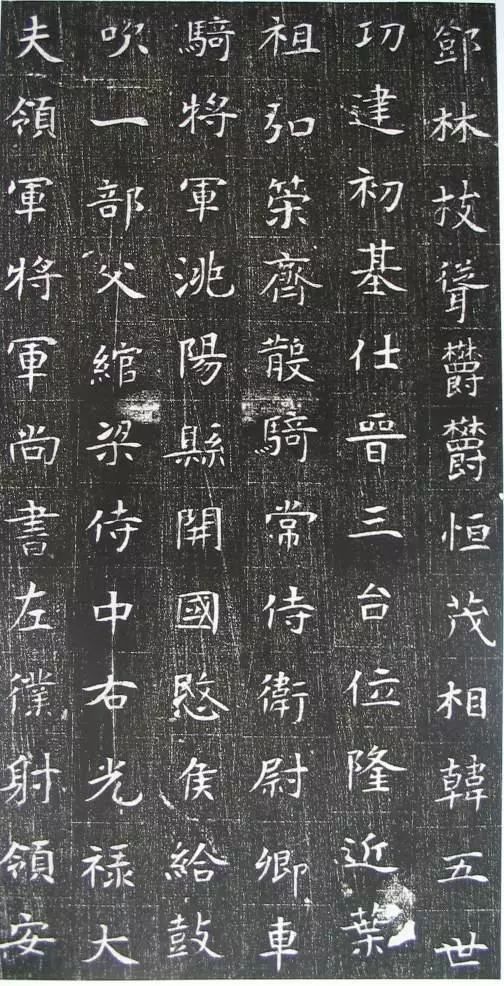 鄧林枝聳欝欝恒茂相韓五世
㓛建初基仕晉三台位隆近葉
祖弘策齊散騎常侍衛尉卿車
騎將軍洮陽縣開國愍侯給鼓
吹一部父綰梁侍中右光禄大
夫領軍將軍尚書左僕射領安